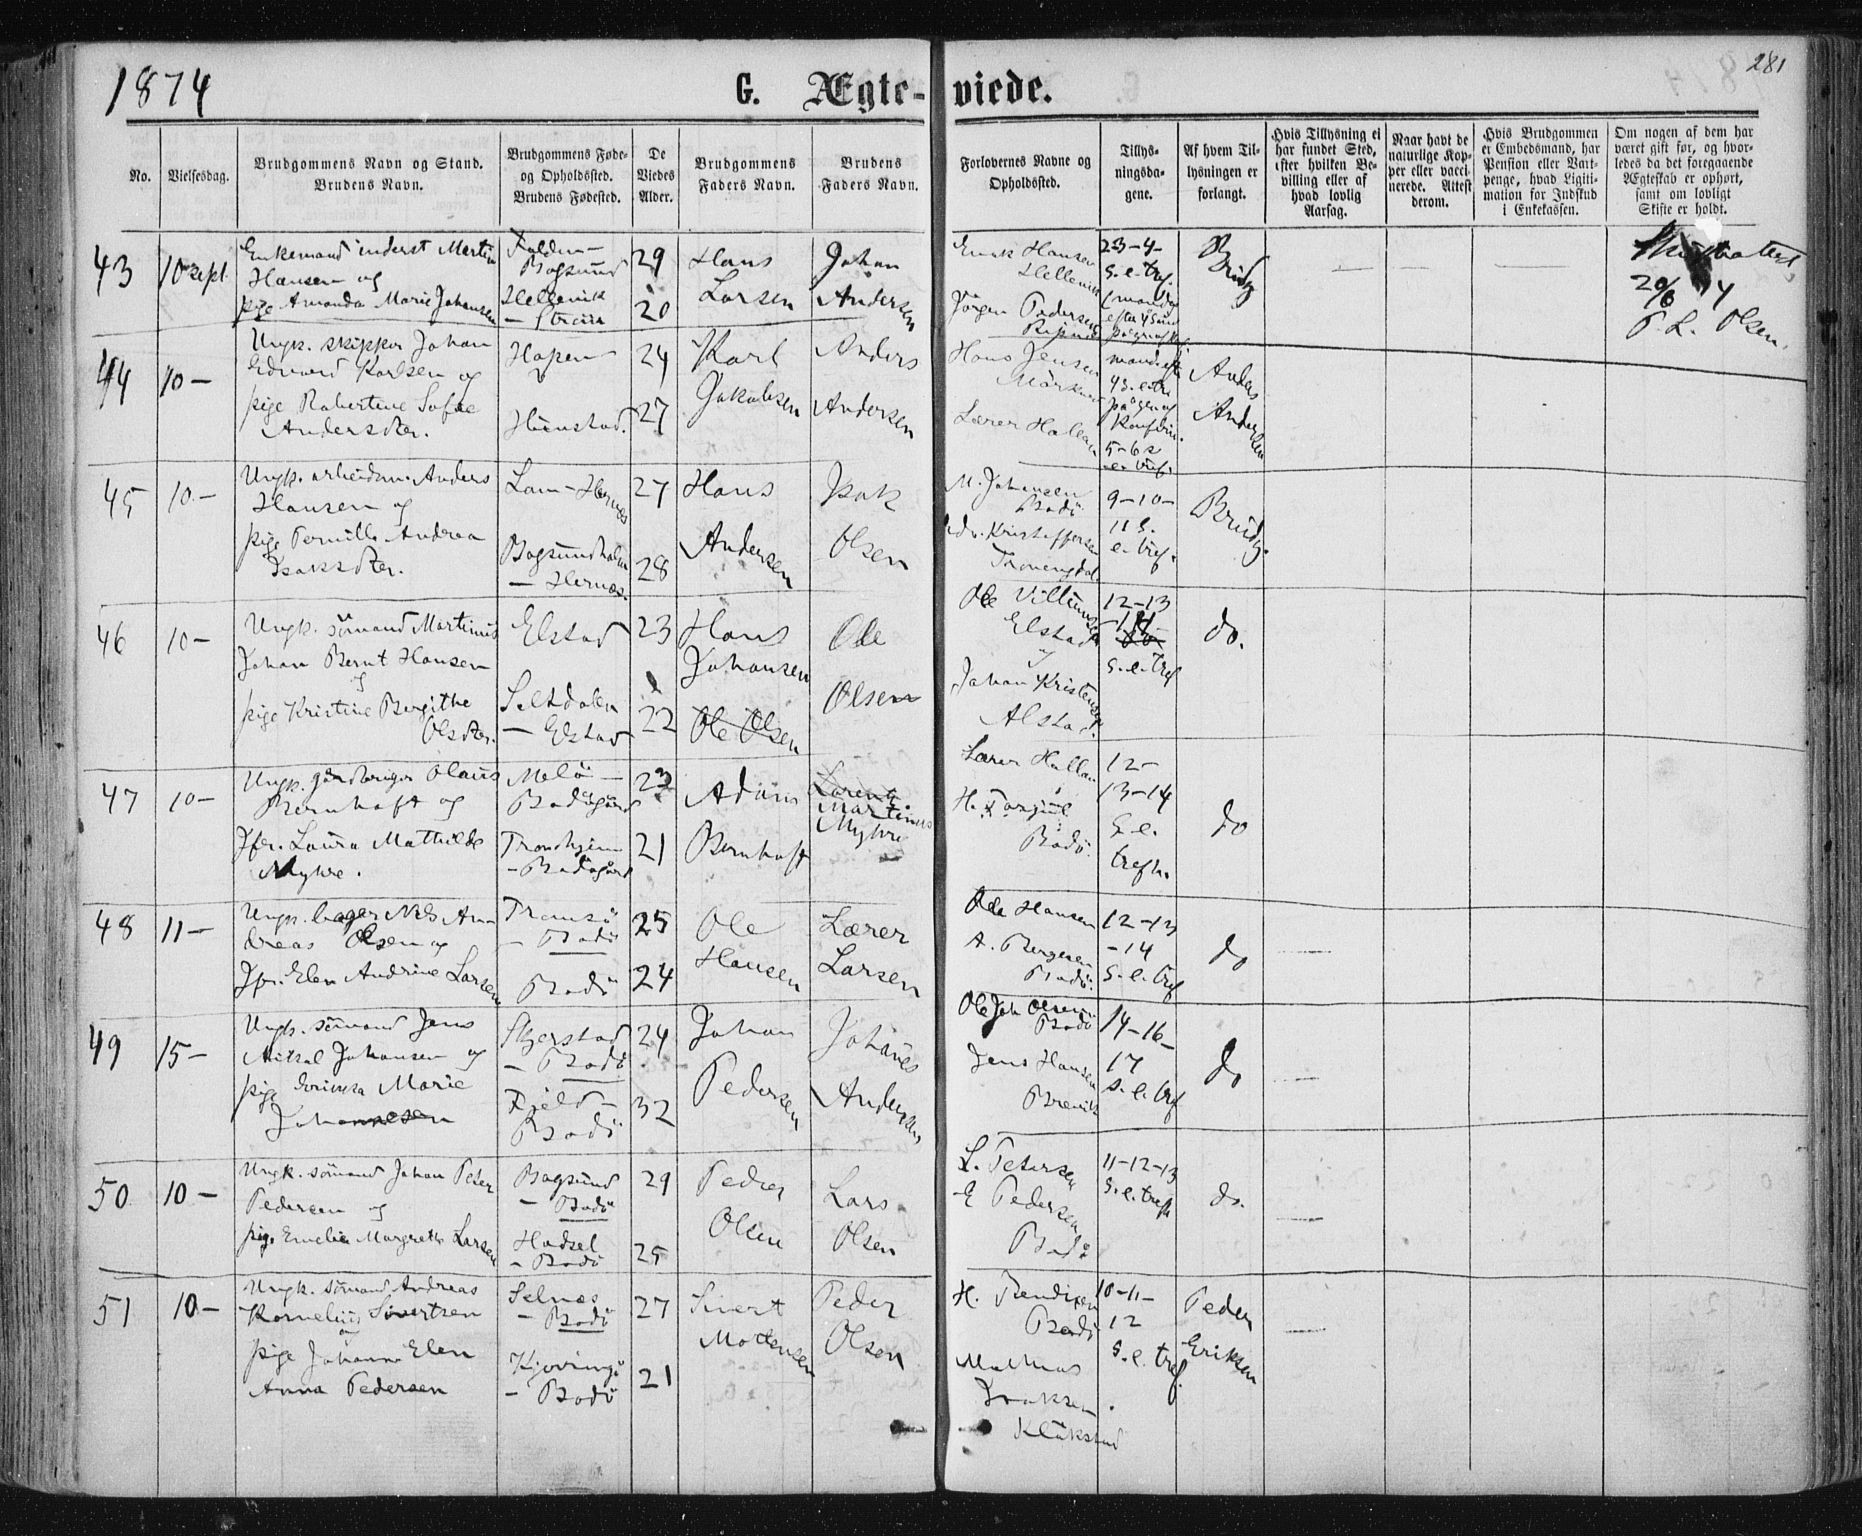 1874
G. Ægte-
viede.
281
No.
Vielsesdag.
Brudgommens Navn og Stand.
Brudens Navn.
Brudgommens Føde-
og Opholdssted.
Brudens Fødested.
De
Viedes
Alder.
Brudgommens
Faders Navn.
Brudens
Faders Navn.
Forlovernes Navne og
Opholdssted.
Tillys-
ningsda-
gene.
Af hvem Til-
lysningen er
forlangt.
Hvis Tillysning ei
har fundet Sted,
efter hvilken Be-
villing eller af
hvad lovlig
Aarsag.
Naar havt de
naturlige Kop-
per eller vacci-
nerede. Attest
derom.
Hvis Brudgommen
er Embedsmand, har
Pension eller Vart-
penge, hvad Legiti-
mation for Indskud
i Enkekassen.
Om nogen af dem har
været gift før, og hvor-
ledes da det foregaaende
Ægteskab er ophørt,
samt om lovligt
Skifte er holdt.
43
10 sept.
Enkemand inderst Martin
Hansen og
pige Amanda Marie Johansen
Folden-
Bogsund
Hellevik
29
20
Hans
Larsen
Johan
Andersen
Hansen
Hellevik
Jörgen Pedersen
23-4-
s.e.tref.
Brudg
Skifteattest
20/8 74
P. L. Olsen.
44
10-
Ungk. skipper Johan
Edvard Karlsen og
pige Robertine Sofie
Andersdter.
Hopen
Hunstad.
24
27
Karl
Jakobsen
Anders
Andersen
Hans Jensen
5-6 s
e. tref.
Anders
Andersen
45
10-
Ungk. arbeidsm. Anders
Hansen og
pige Pernille Andrea
Isaksdter.
Bogsundholm
- Hernæs.
27
28
Hans
Andersen
Isak
Olsen
M. Johansen
Bodö
Kristoffersen
9-10-
11 s.
e. tref.
Brudg.
46
10-
Ungk. sömand Martinus
Johan Bernt Hansen
og
pige Kristine Bergithe
Olsdter.
Elstad
Seltdalen
- Elstad
23
22
Hans
Johansen
Ole Olsen
Ole
Olsen
Ole Villumsen
Elstad
og
Johan Kristensen
Alstad.
12-13
-14-
s.e.tref
do.
47
10-
Ungk. gårdbruger Olaus
Bernhoft og
Jfr. Laura Mathilde
Myhre.
Melö -
Bodögård
Trondhjem
- Bodögård
23
21
Adam
Bernhoft
Martinus
Myhre
Lærer Hallan
Bodö.
12-
13-14
s.e.
trefh.
do
48
11-
Ungk. bager Nils An-
dreas Olsen og
Jfr. Elen Andrine Larsen
Tromsö
- Bodö
Bodö
25
24
Ole
Hansen
Lærer
Larsen
Ole Hansen
A. Bergesen
Bodö.
12-13
-14
s.e.tref
do
49
15-
Ungk. sömand Jens
Mikal Johansen og
pige Marie
Johannesen
Skjerstad
- Bodö
Fjeld-
Bodö
24
32
Johan
Pedersen
Johanes
Andersen
Ole Joh Olsen
Bodö
Jens Hansen
Brevik
14-16-
17
s.e.tref
do
50
10-
Ungk. sömand Johan Peter
Pedersen og
pige Emelie Margrethe Larsen
Bogsund
- Bodö
Hadsel
- Bodö
29
25
Peder
Olsen
Lars
Olsen
L. Petersen
E Pedersen
Bodö
11-12-13
s.e.trefh
do.
51
10-
Ungk. sömand Andreas
Kornelius Sivertsen
og
pige Johanna Elen
Anna Pedersen
Selnæs
- Bodö
Kjerringö
- Bodö
27
21
Sivert
Mortensen
Peder
Olsen
H. Bendixen
Bodö
Mathias
Isaksen
Klökstad
10-11-
12
s.e.tref.
Peder
Eriksen